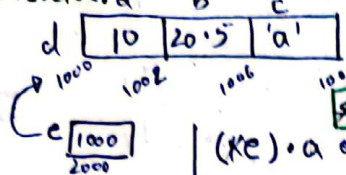 B C
d 10 20.5 'a'
1000 1002 1006
e 1000
2000
(*e).a